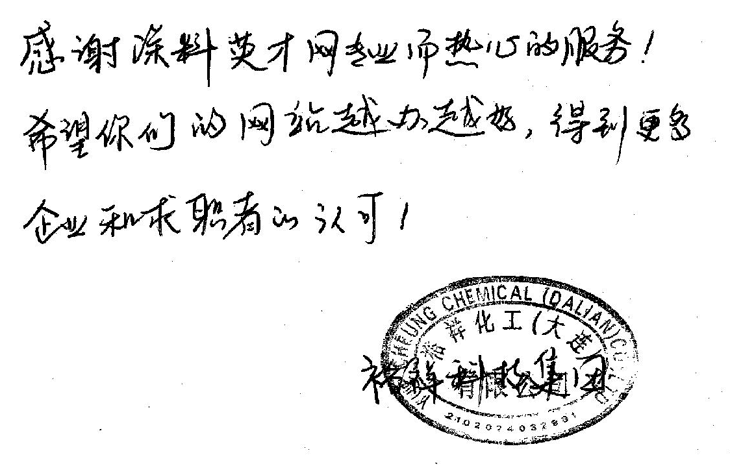 感谢涂料英才网专业而热心的服务！
希望你们的网站越办越好，得到更多
企业和求职者的认可！
CHEUNG CHEMICAL (DALIAN) CO., LTD
裕祥化工(大连)
有限公司
裕祥科技集团